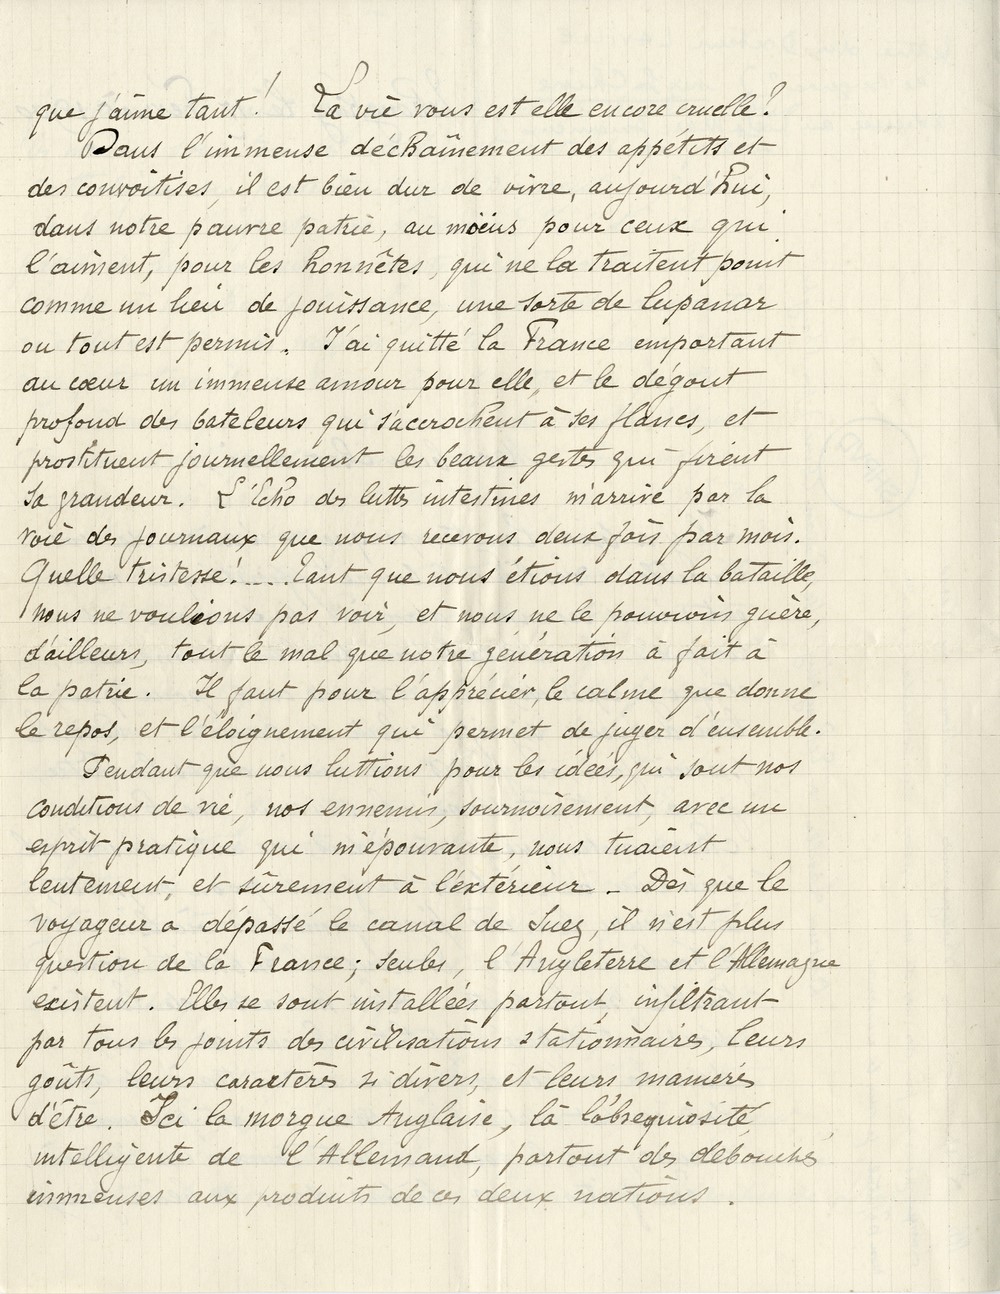 que j'aime tant! La vie vous est elle encore cruelle?
Dans l'immense déchaînement des appétits et
des convoitises, il est bien dur de vivre, aujourd'hui,
dans notre pauvre patrie, au moins pour ceux qui
l'aiment, pour les honnêtes, qui ne la traitent point
comme un lieu de jouissance, une sorte de lupanar
ou tout est permis. J'ai quitté la France emportant
au cœur un immense amour pour elle, et le dégout
profond des bateleurs qui s'accrochent à ses flancs, et
prostituent journellement les beaux gestes qui firent
sa grandeur. L'Echo des luttes intestines m'arrive par la
voie des journaux que nous recevons deux fois par mois.
Quelle tristesse!.... Tant que nous étions dans la bataille,
nous ne voulions pas voir, et nous ne le pouvions guère,
d'ailleurs, tout le mal que notre génération à fait à
la patrie. Il faut pour l'apprécier, le calme que donne
le repos, et l'éloignement qui permet de juger d'ensemble.
Pendant que nous luttions pour les idées, qui sont nos
conditions de vie, nos ennemis, sournoisement, avec un
esprit pratique qui m'épouvante, nous tuaient
lentement, et sûrement à l'extérieur - Dès que le
voyageur a dépassé le canal de Suez, il n'est plus
question de la France; seules, l'Angleterre et l'Allemagne
existent. Elles se sont installées partout, infiltrant
par tous les joints des civilisations stationnaires, leurs
goûts, leurs caractères si divers, et leurs manieres
d'être. Ici la morgue Anglaise, là l'obsequiosité
intelligente de l'Allemand, partout des débouchés
immenses aux produits de ces deux nations.